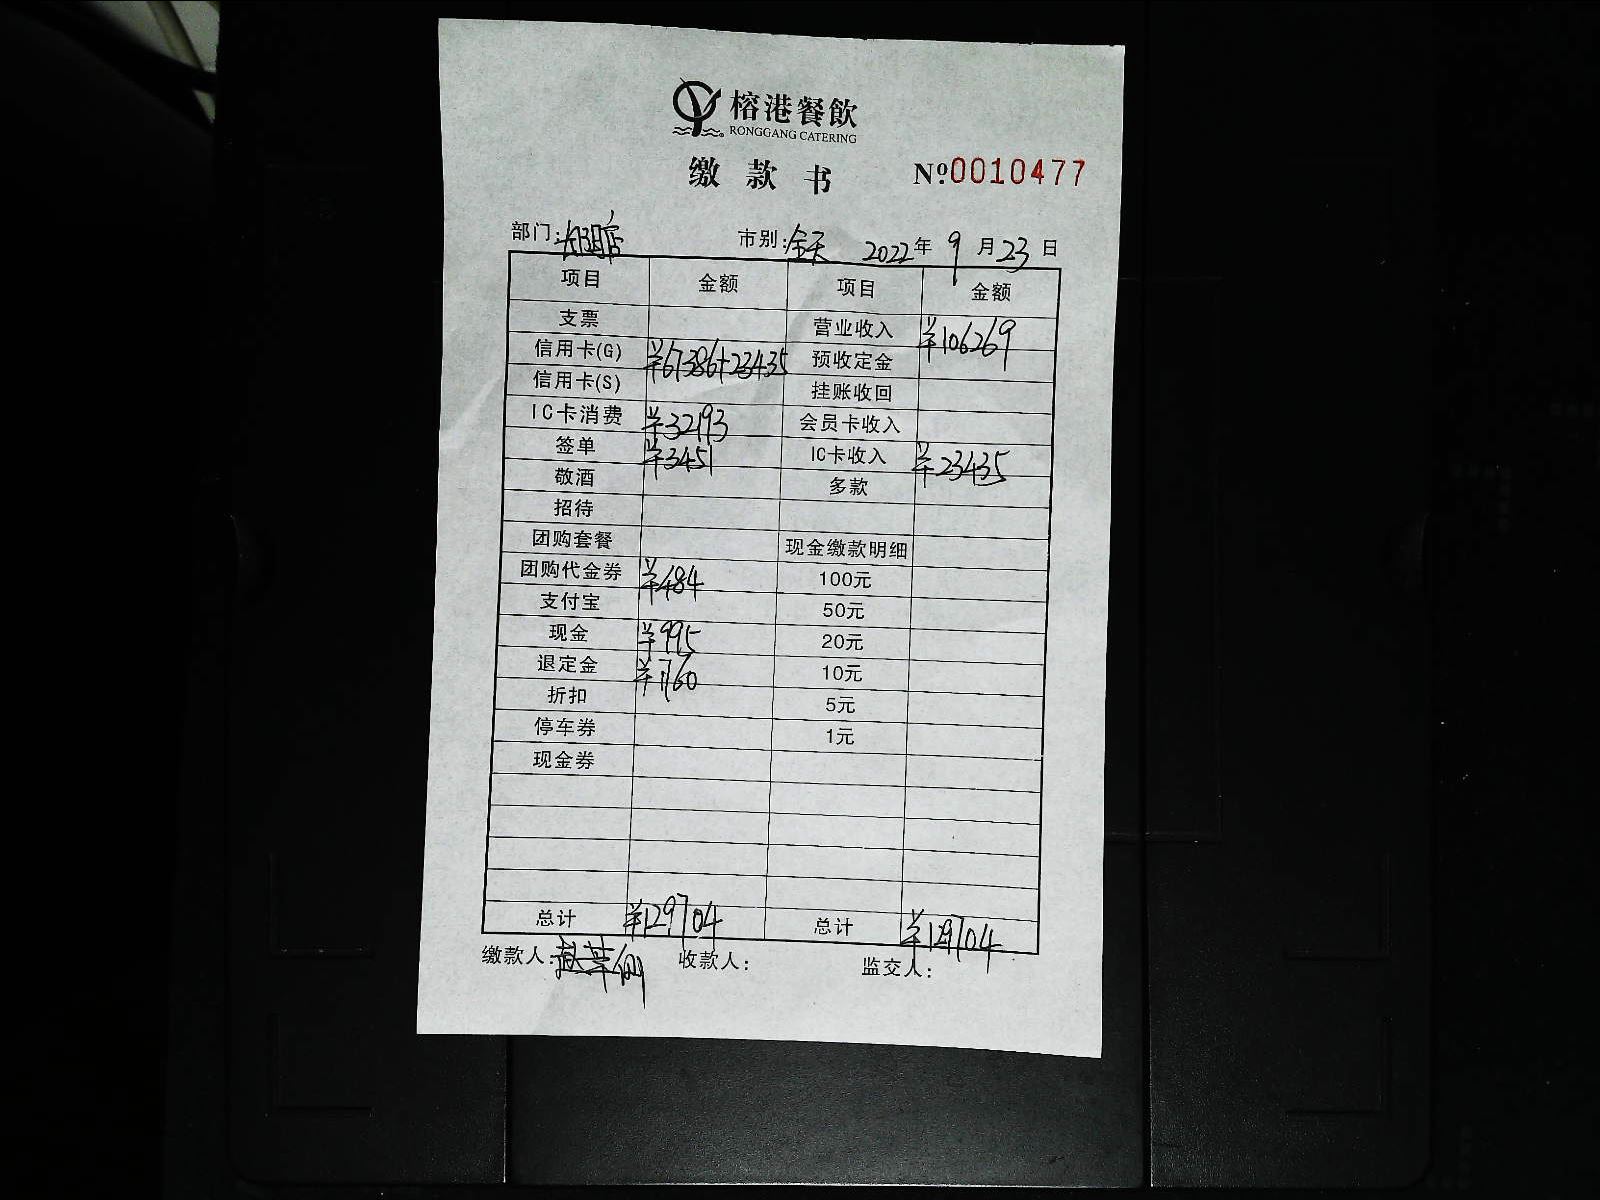 榕港餐飲
RONGGANG CATERING
缴款书 Nº.0010477
部门:长阳店 市别:全天 2022年9月23日
项目 金额 项目 金额
支票 营业收入 ¥106269
信用卡(G) ¥67386+23435 预收定金
信用卡(S) 挂账收回
IC卡消费 ¥32193 会员卡收入
签单 ¥3451 IC卡收入 ¥23435
敬酒 多款
招待
团购套餐 现金缴款明细
团购代金券 ¥484 100元
支付宝 50元
现金 ¥995 20元
退定金 ¥1760 10元
折扣 5元
停车券 1元
现金券
总计 ¥129704 总计 ¥129704
缴款人: 收款人: 监交人: